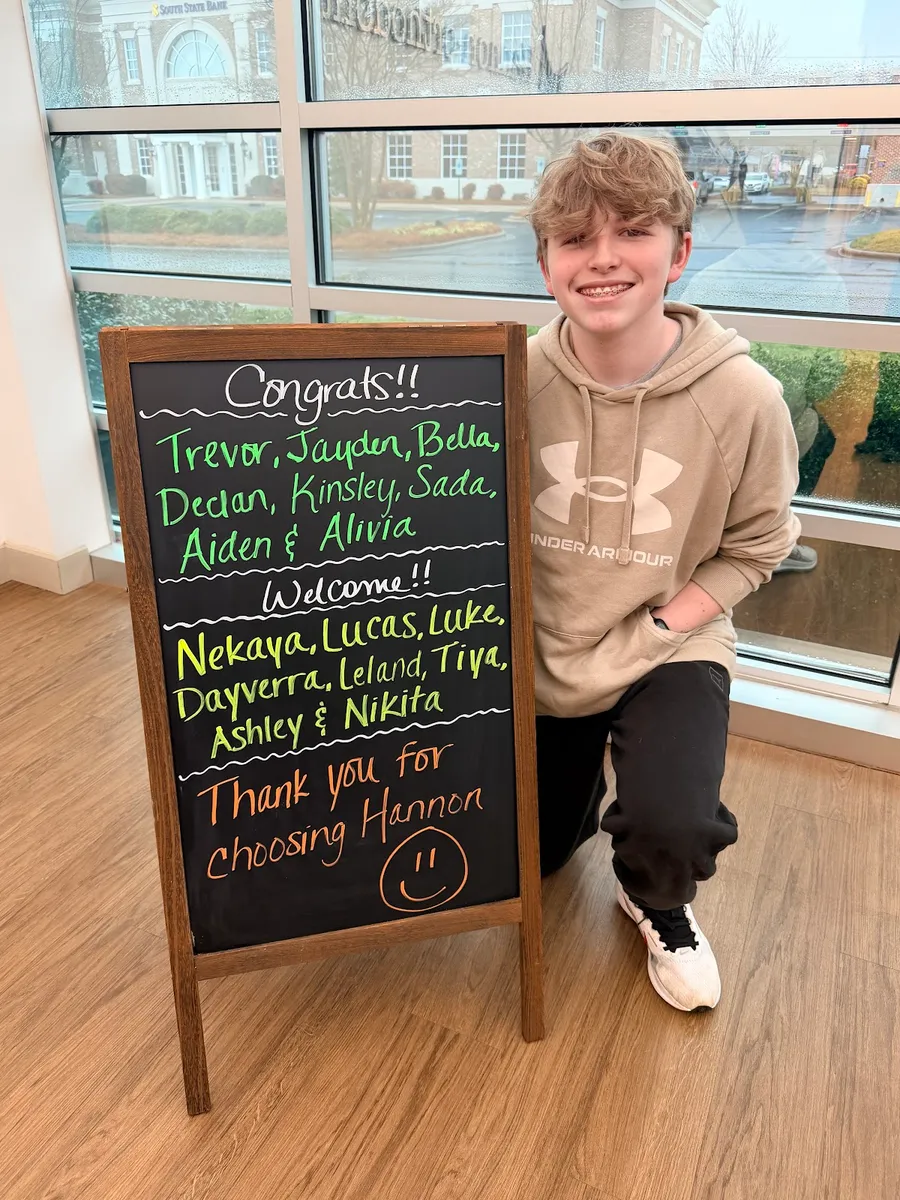 SOUTH STATE BANK
Congrats!!
Trevor, Jayden, Bella,
Declan, Kinsley, Sada,
Aiden & Alivia
Welcome!!
Nekaya, Lucas, Luke,
Dayverra, Leland, Tiya,
Ashley & Nikita
Thank you for
choosing Hannon
UNDER ARMOUR